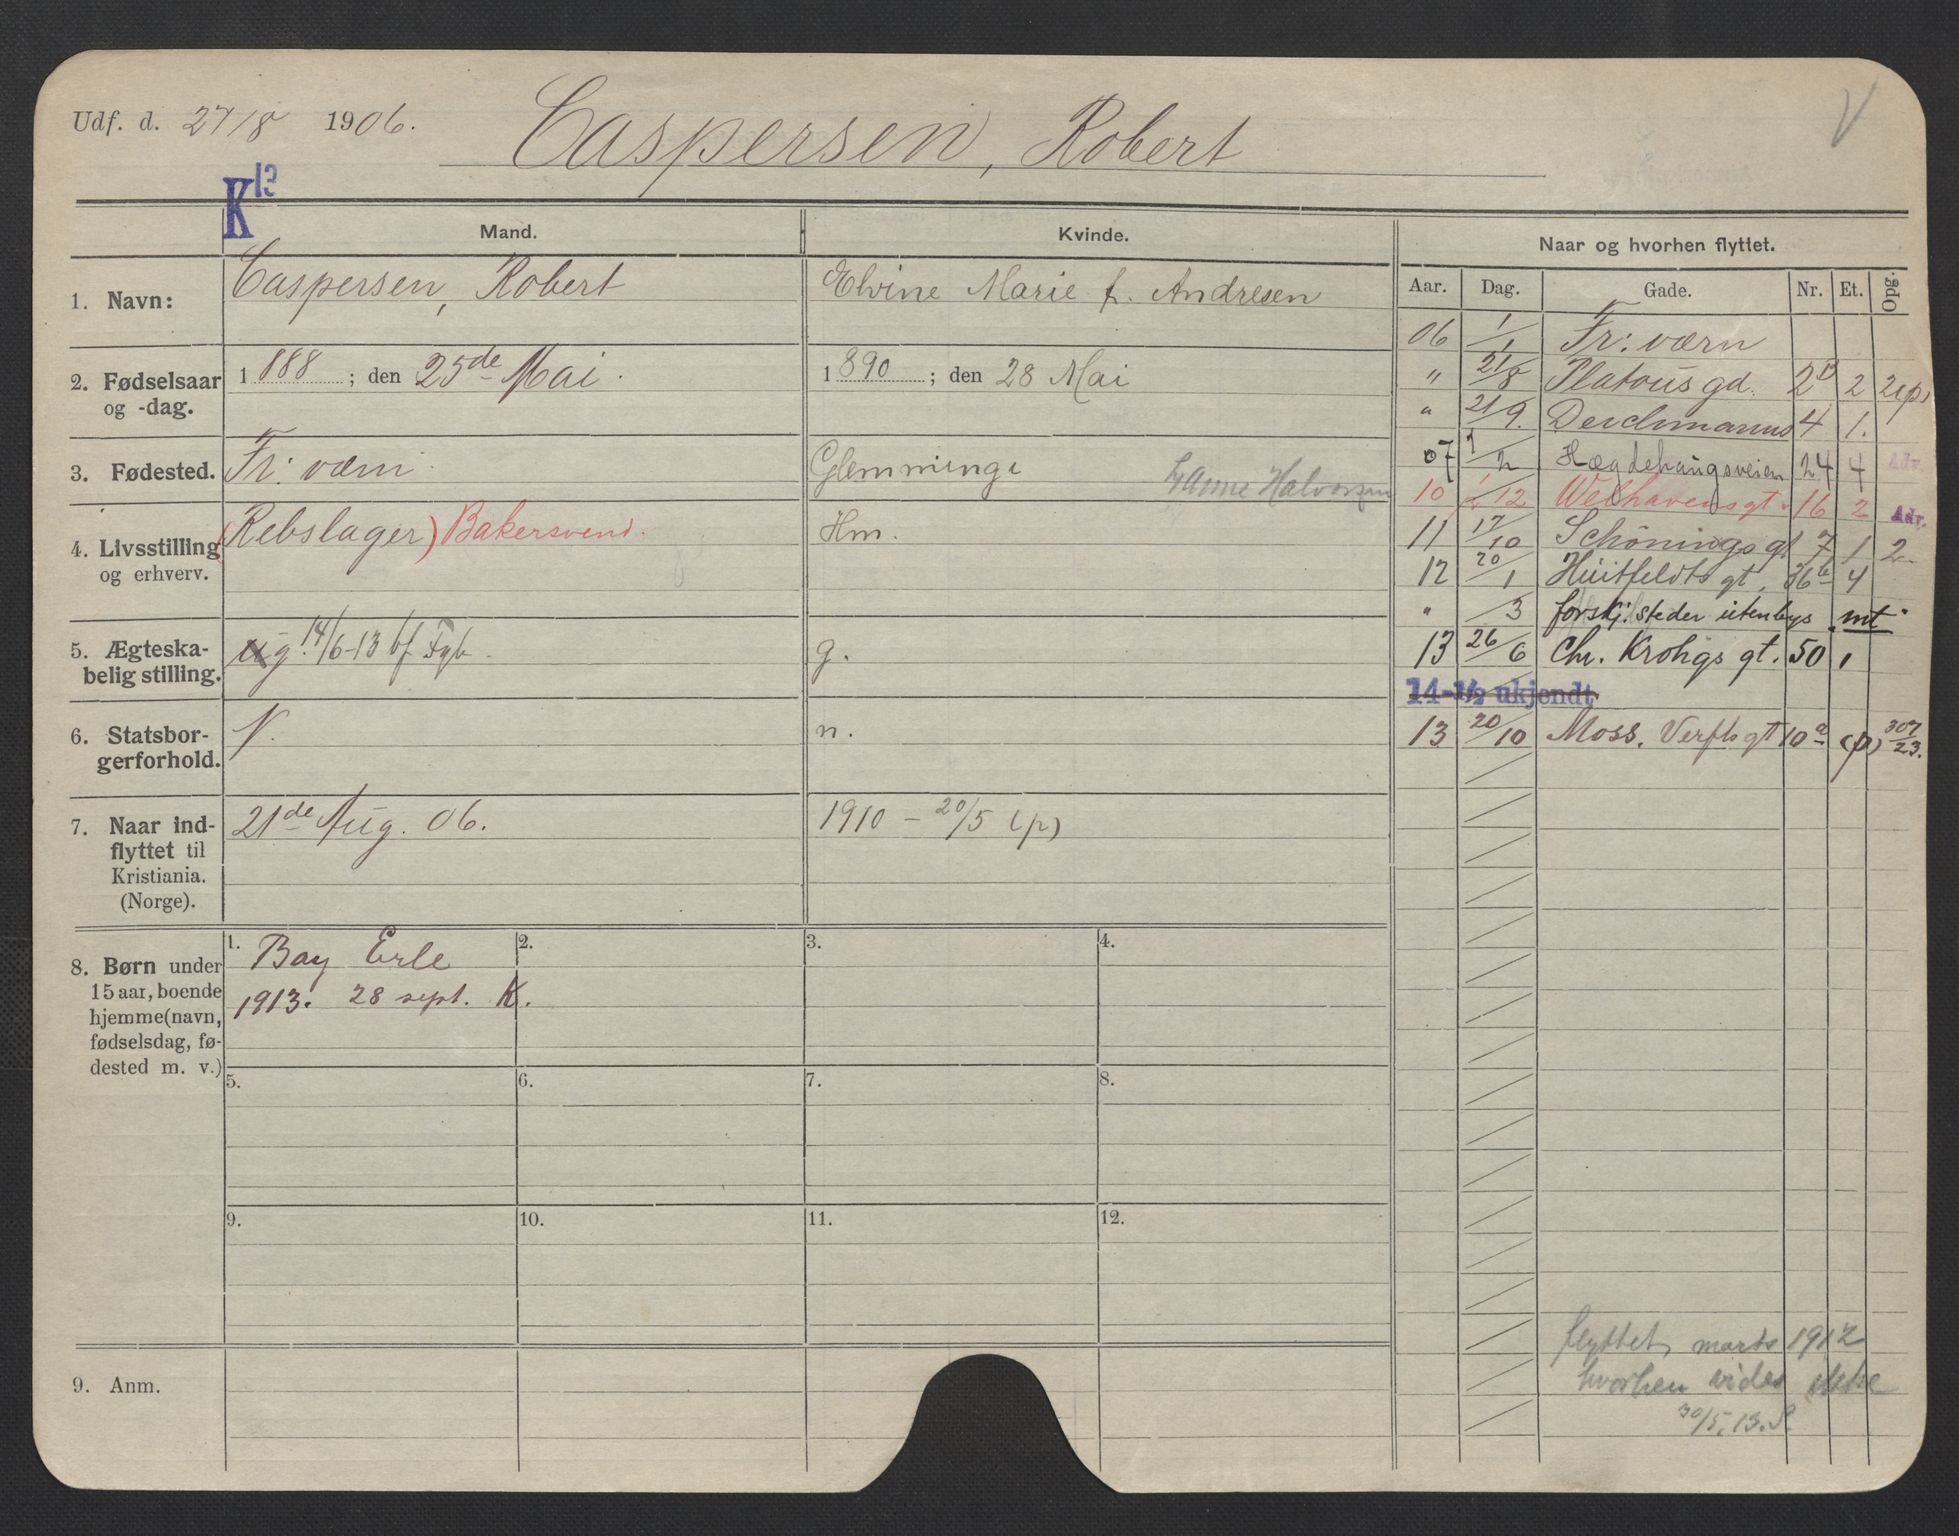 Udf. d. 27/8 1906. Caspersen, Robert V
K 13
Mand. Kvinde. Naar og hvorhen flyttet.
Aar. Dag. Gade. Nr. Et. Opg.
1. Navn: Caspersen, Robert Elvine Marie f. Andresen
2. Fødselsaar og -dag. 1888; den 25de Mai. 1890; den 28 Mai
3. Fødested. Fr: værn. Glemminge Halvorsen
4. Livsstilling og erhverv. (Rebslager) Bakersvend. Hm.
5. Ægteska-
belig stilling. ug. g. 14/6-13 bf Fgb. g.
6. Statsbor-
gerforhold. N. n.
7. Naar ind-
flyttet til
Kristiania.
(Norge). 21de Aug. 06. 1910 – 20/5 (p)
8. Børn under
15 aar, boende
hjemme (navn,
fødselsdag, fø-
dested m. v.)
1. Bay Erle
1913. 28 sept. K.
2.
3.
4.
5.
6.
7.
8.
9.
10.
11.
12.
9. Anm.
06 1/1 Fr: værn
" 21/8 Platous gd. 2B 2 2(p)
" 21/9. Deichmanns 4 1.
07 1/2 Hægdehaugsveien 24 4 Adr.
10 1/12 Welhavens gt. 16 2 Adr.
11 17/10 Schønings gt 7 1 2
12 20/1 Huitfeldts gt. 36b 4
" /3 forskj. steder utenbys mt.
13 26/6 Chr. Krohgs gt. 50 1
14-1/2 ukjendt
13 20/10 Moss. Verfts gt 10a (p) 307/23.
flyttet marts 1912
hvorhen vides ikke
30/5. 13. S.